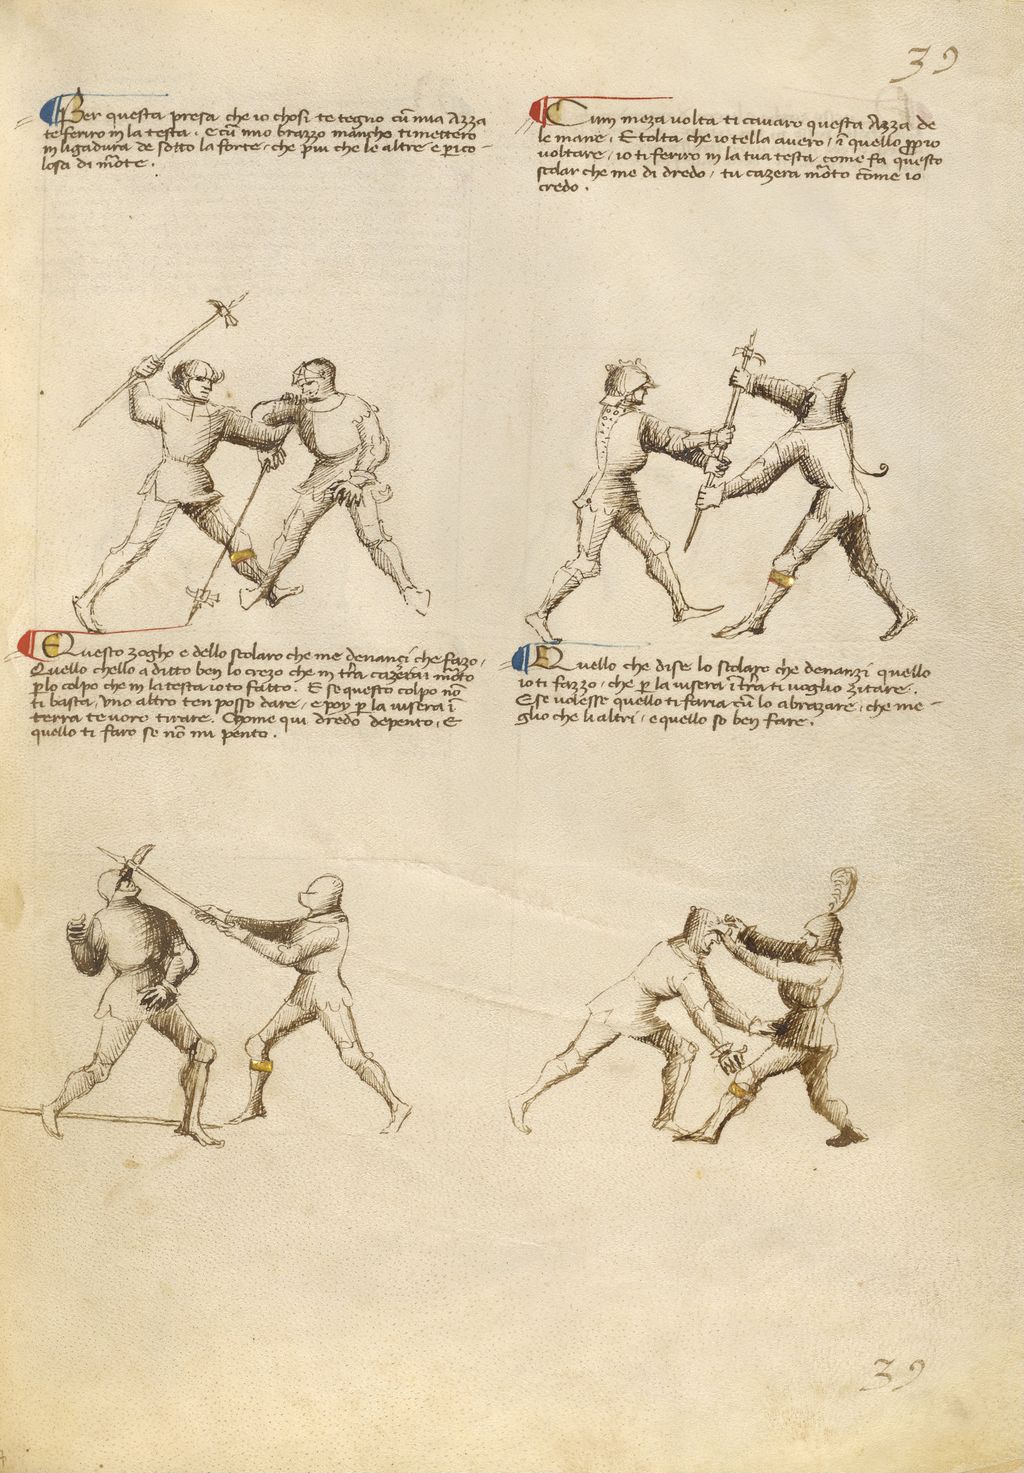 39
Per questa presa che io chosi te tegno cũ mia Azza
te feriro in la testa. E cũ mio brazzo mancho ti mettero
in ligadura de sotto la forte, che piu che le altre e perico-
losa di mõte.
Cum meza volta ti cavaro questa Azza de
le mane. E tolta che io tella avero, ĩ quello p̱prio
voltare, io ti feriro in la tua testa come fa questo
scolar che me di dredo, tu cazera mõto come io
credo.
Questo zogho e dello scolaro che me denanci che fazo,
Quello chello a ditto ben lo crezo che in tr̃a cazerai mõto
p̱ lo colpo che in la testa io to fatto. E se questo colpo nõ
ti basta, uno altro ten posso dare, e poy p̱ la visera ĩ
terra te voro tirare. Chome qui dredo depento, E
quello ti faro se nõ mi pento.
Quello che dise lo scolaro che denanzi quello
io ti fazzo, che p̱ la visera ĩ tr̃a ti voglio zitare.
E se volesse quello ti faria cũ lo abrazare, che me-
glio che li altri, e quello so ben fare.
39